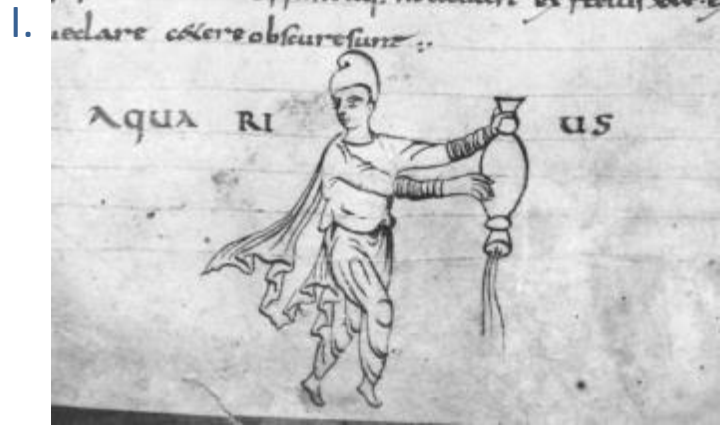 I.
ueclare c&ere obscuresunt
AQUA RI US